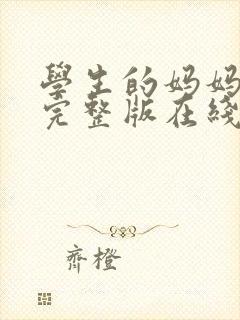 學生的妈妈
完整版在綫
齊橙